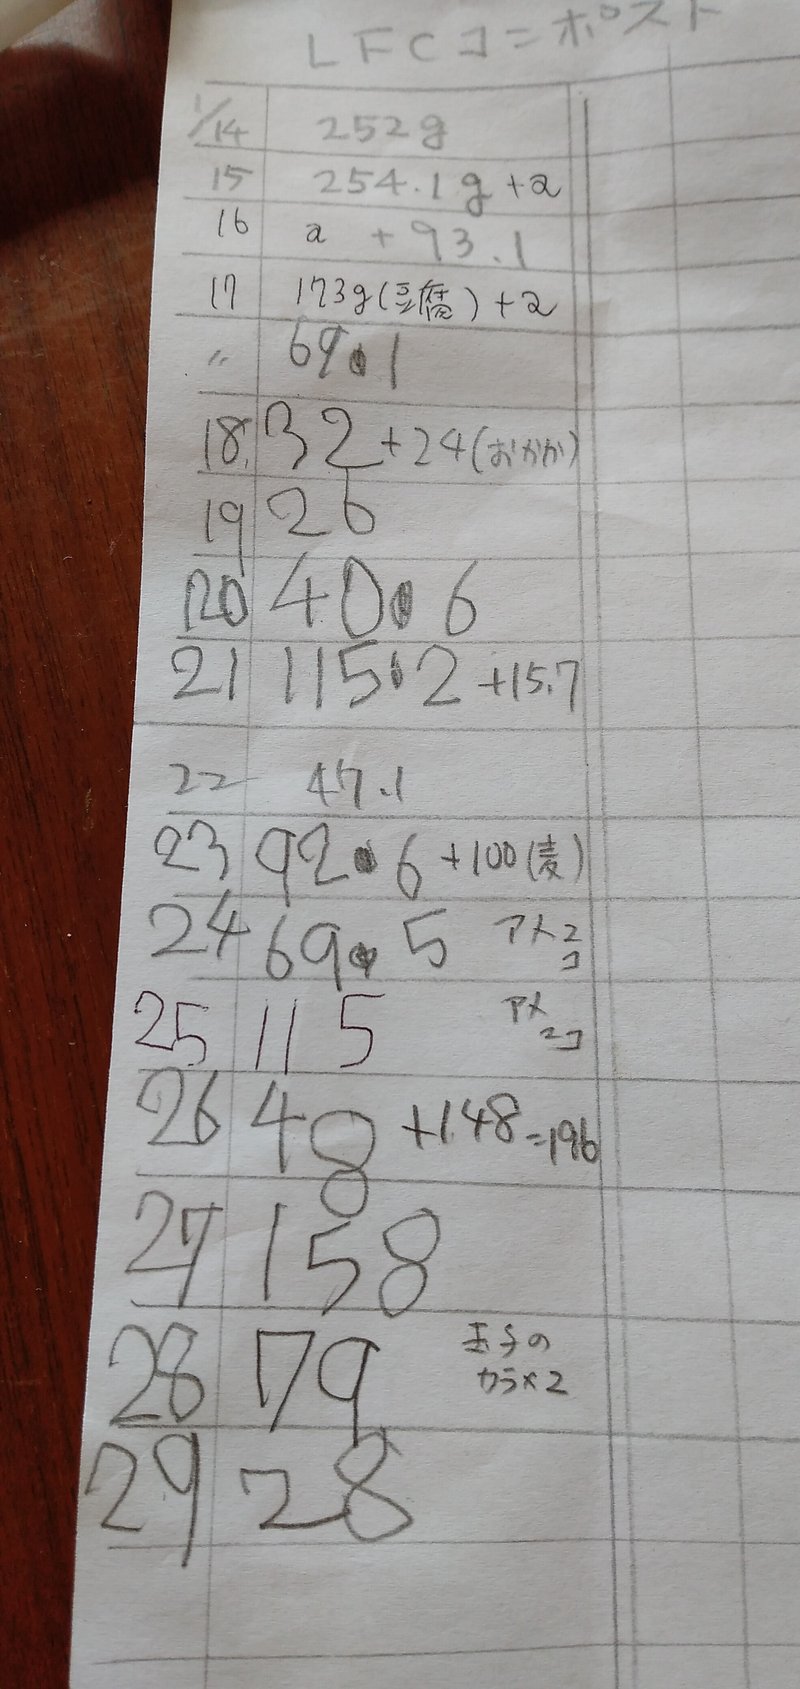 LFCコンポスト
1/14 252g
15 254.1g +α
16 α +93.1
17 173g(豆腐)+α
〃 69.1
18 32+24(おかか)
19 26
20 40.6
21 115.2+15.7
22 47.1
23 92.6+100(麦)
24 69.5 アメ2コ
25 115 アメ2コ
26 48+148=196
27 158
28 79 玉子のカラ×2
29 28